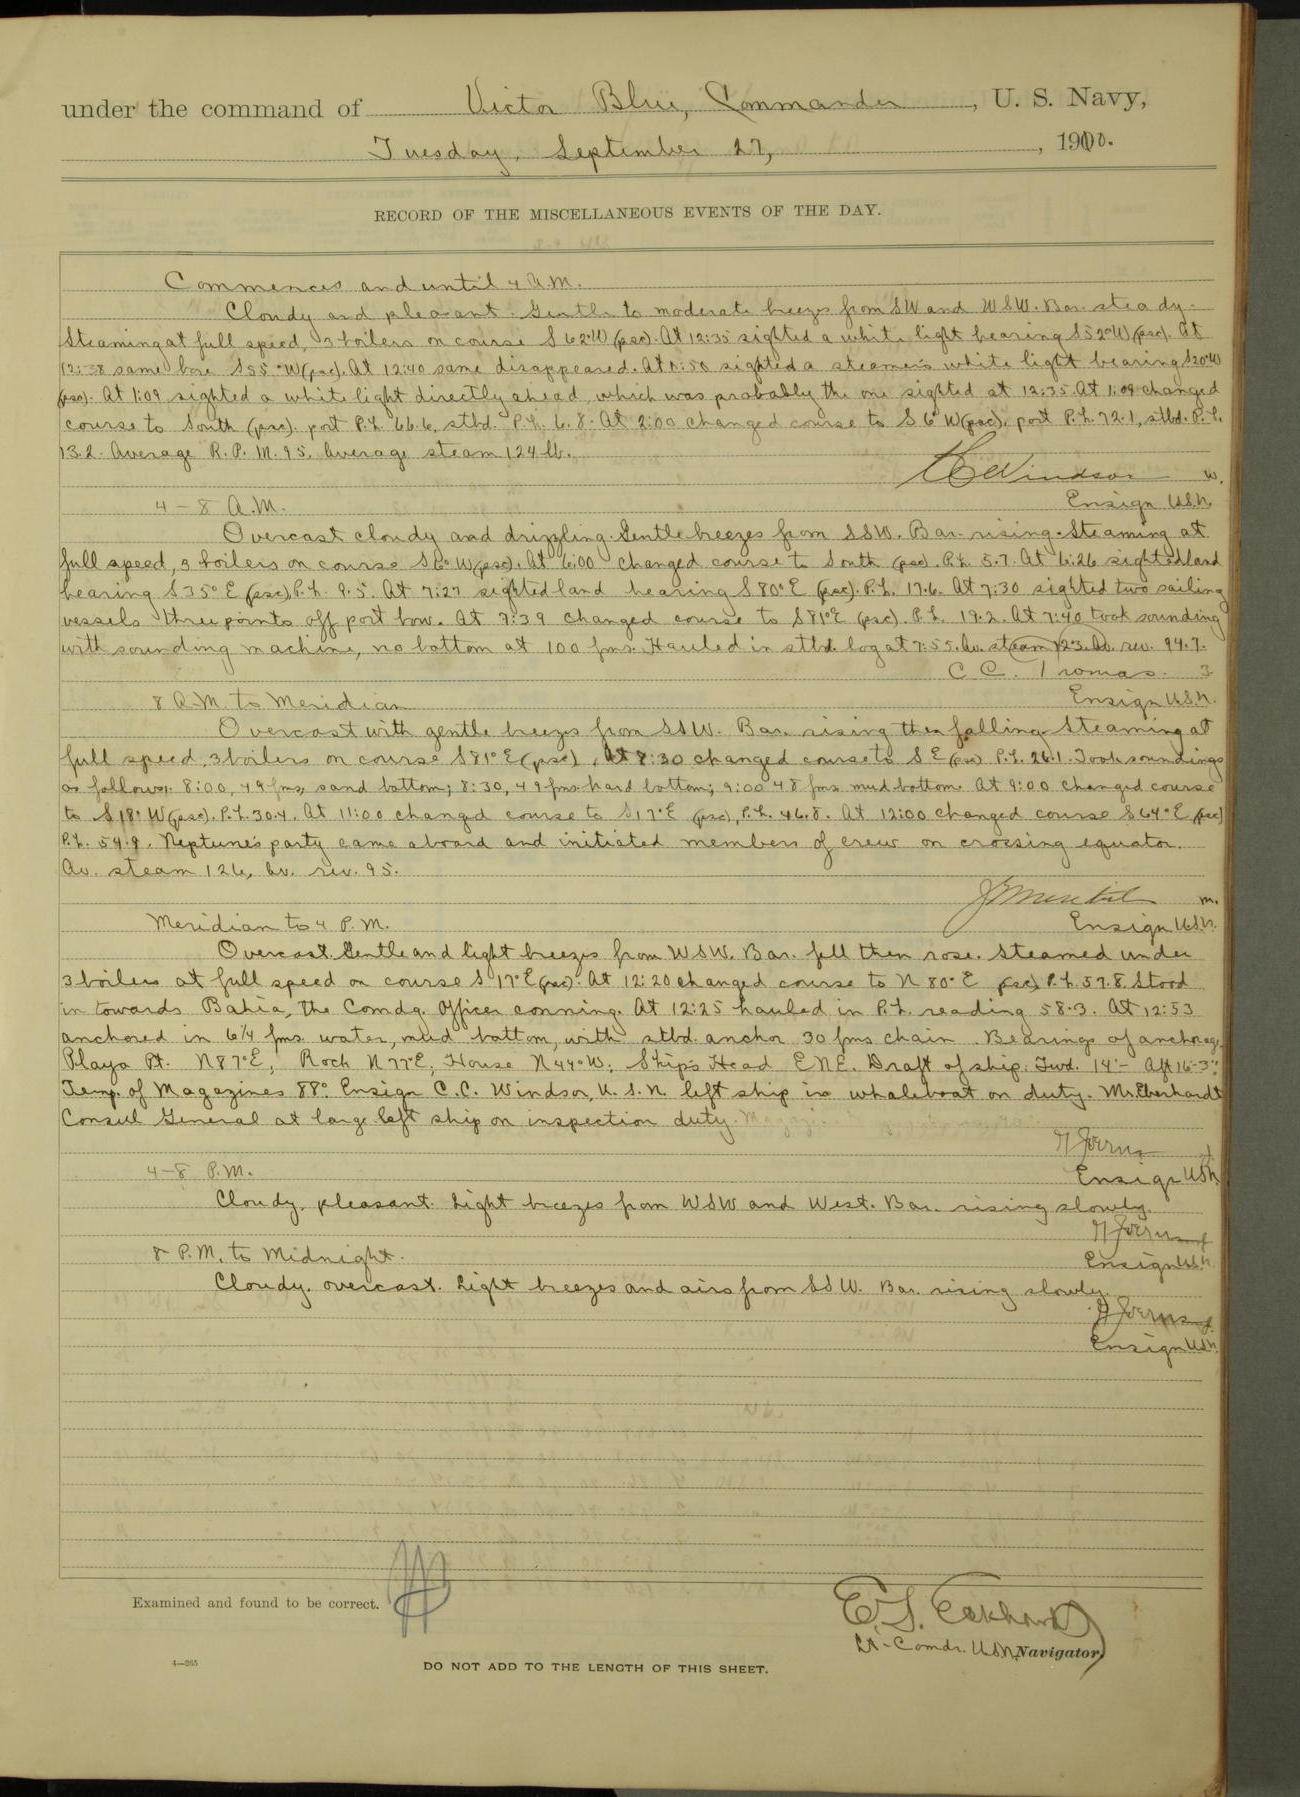 under the command of Victor Blue, Commander, U. S. Navy,
Tuesday, September 27, 1910.
RECORD OF THE MISCELLANEOUS EVENTS OF THE DAY.
Commences and until 4 A.M.
Cloudy and pleasant. Gentle to moderate breezes from SW and WSW. Bar. steady.
Steaming at full speed, 3 boilers on course S 62° W (psc). At 12:35 sighted a white light bearing S 52° W (psc). At
12:38 same bore S 55° W (psc). At 12:40 same disappeared. At 12:50 sighted a steamer's white light bearing S 20° W
(psc). At 1:09 sighted a white light directly ahead, which was probably the one sighted at 12:35. At 1:09 changed
course to South (psc). port P.L. 66.6, stbd. P.L. 6.8. At 2:00 changed course to S 6° W (psc), port P.L. 72.1, stbd. P.L.
13.2. Average R.P.M. 95. Average steam 124 lb.
CC Windsor W.
4 - 8 A.M. Ensign U.S.N.
Overcast cloudy and drizzling. Gentle breezes from SSW. Bar. rising. Steaming at
full speed, 3 boilers on course S 6° W (psc). At 6:00 changed course to South (psc). P.L. 5.7. At 6:26 sighted land
bearing S 35° E (psc), P.L. 9.5. At 7:27 sighted land bearing S 80° E (psc). P.L. 17.6. At 7:30 sighted two sailing
vessels three points off port bow. At 7:39 changed course to S 81° E (psc). P.L. 19.2. At 7:40 took sounding
with sounding machine, no bottom at 100 fms. Hauled in stbd. log at 7:55. Av. steam 123. Av. rev. 94.7.
C. C. Thomas. 3
8 A.M. to Meridian Ensign U.S.N.
Overcast with gentle breezes from SSW. Bar. rising then falling. Steaming at
full speed, 3 boilers on course S 81° E (psc). At 8:30 changed course to S E (psc) P.L. 26.1. Took soundings
as follows: 8:00, 49 fms, sand bottom; 8:30, 49 fms hard bottom; 9:00 48 fms mud bottom. At 9:00 changed course
to S 18° W (psc). P.L. 30.4. At 11:00 changed course to S 17° E (psc), P.L. 46.8. At 12:00 changed course S 64° E (psc)
P.L. 54.9. Neptune's party came aboard and initiated members of crew on crossing equator.
Av. steam 126, av. rev. 95.
m.
Meridian to 4 P.M. Ensign U.S.N.
Overcast. Gentle and light breezes from WSW. Bar. fell then rose. Steamed under
3 boilers at full speed on course S 17° E (psc). At 12:20 changed course to N 80° E (psc), P.L. 57.8. Stood
in towards Bahia, the Comdg. Officer conning. At 12:25 hauled in P.L. reading 58.3. At 12:53
anchored in 6¼ fms. water, mud bottom, with stbd. anchor 30 fms chain. Bearings of anchorage
Playa Pt. N 87° E; Rock N 77° E; House N 44° W; Ship's Head ENE. Draft of ship: Fwd. 14'- Aft 16'-3".
Temp. of Magazines 88°. Ensign C.C. Windsor, U.S.N. left ship in whaleboat on duty. Mr. Eberhardt
Consul General at large left ship on inspection duty.
4-8 P.M. Ensign U.S.N.
Cloudy, pleasant. Light breezes from WSW and West. Bar. rising slowly.
8 P.M. to Midnight. Ensign U.S.N.
Cloudy, overcast. Light breezes and airs from SSW. Bar. rising slowly.
Ensign U.S.N.
Examined and found to be correct.
E. S.
Lt-Comdr. U.S.N. Navigator.
4-265
DO NOT ADD TO THE LENGTH OF THIS SHEET.